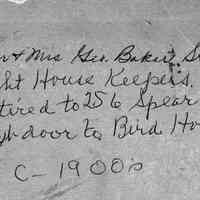 & Mrs Geo. Baker, S
ht House Keepers.
tired to 256 Spear
door to Bird Ho
C-1900's